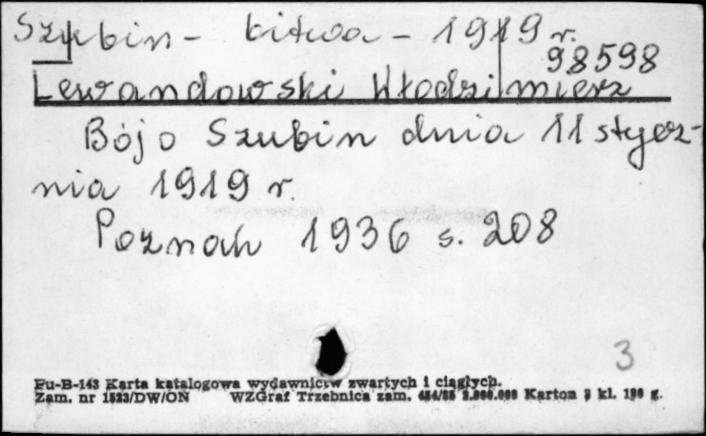 Szubin - bitwa - 1919 r.
98598
Lewandowski Włodzimierz
Bój o Szubin dnia 11 stycz-
nia 1919 r.
Poznań 1936 s. 208
3
Pu-B-143 Karta katalogowa wydawnictw zwartych i ciągłych.
Zam. nr 1523/DW/ON WZGraf Trzebnica zam. Karton 3 kl. 190 g.